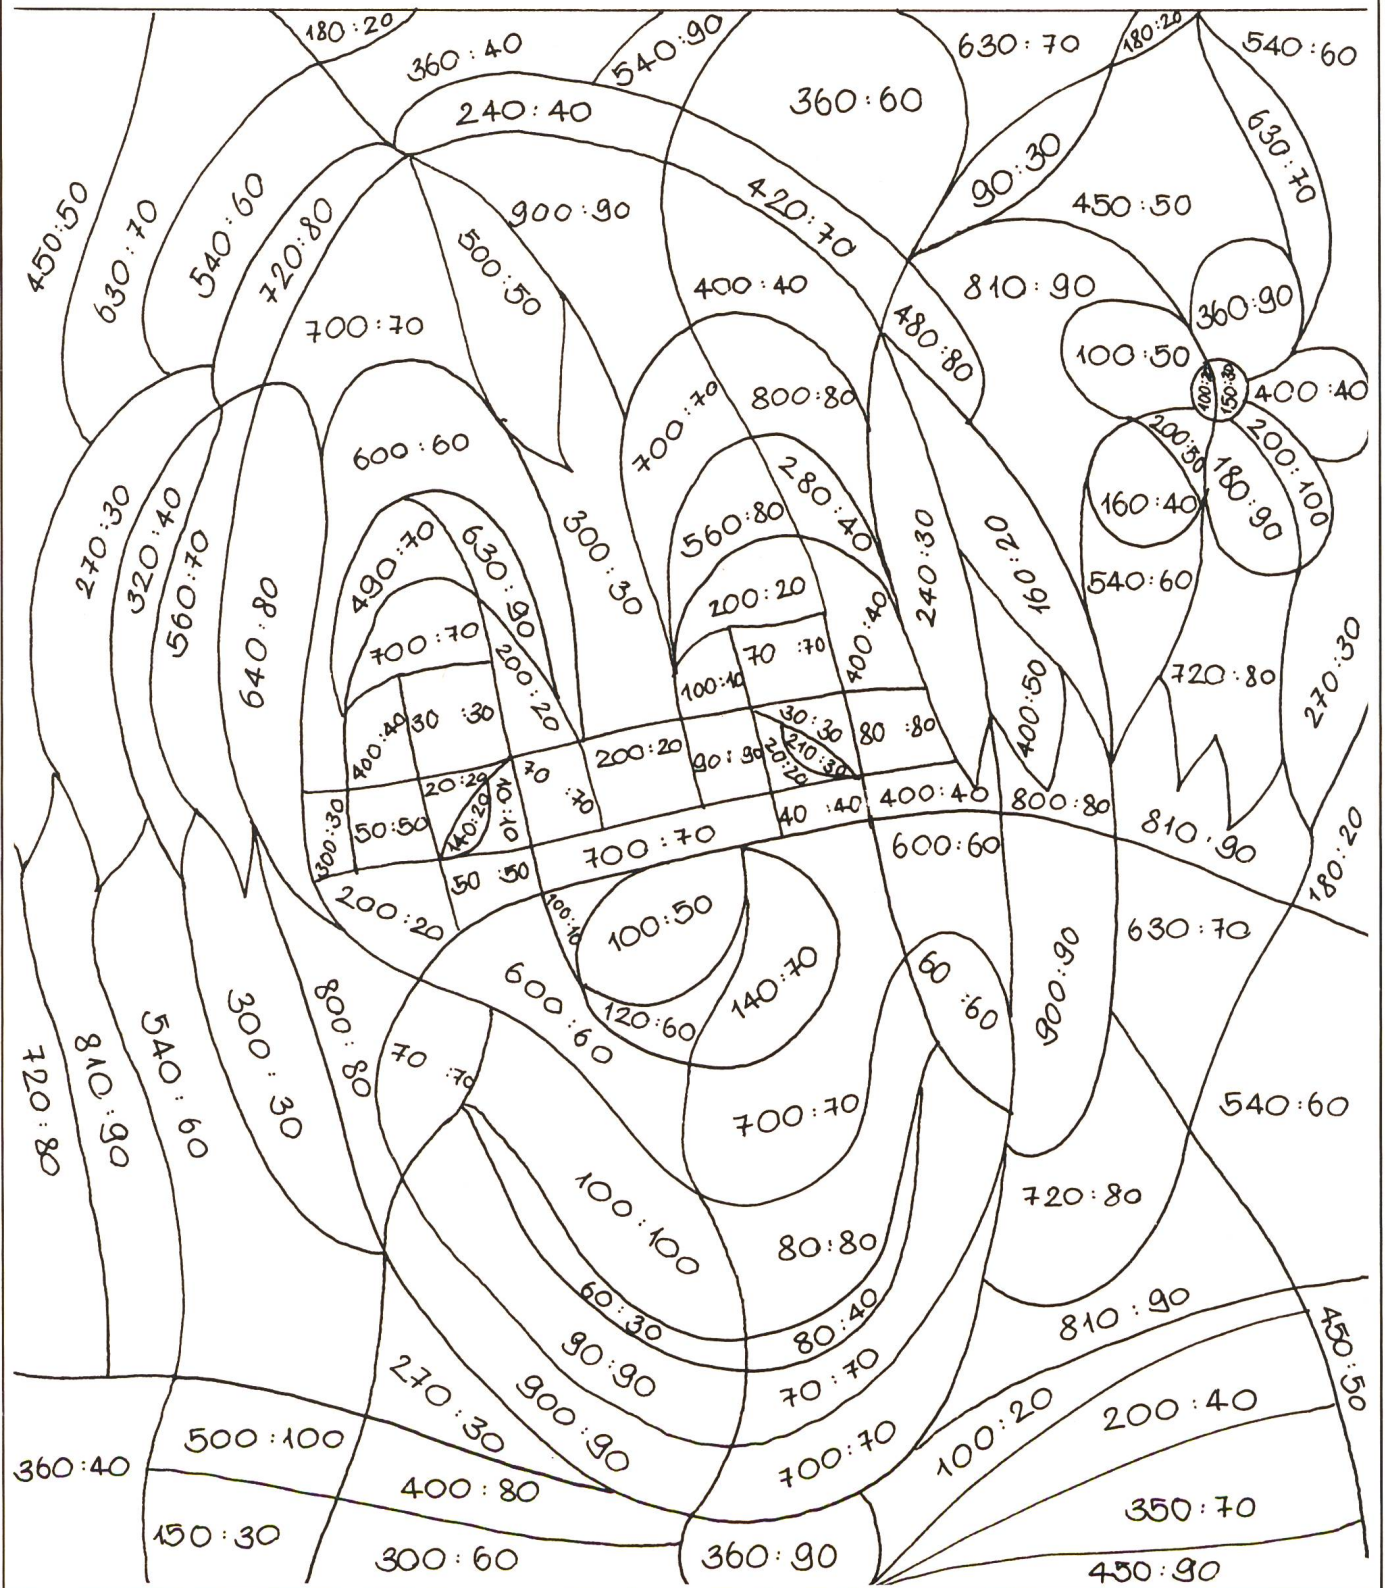 180:20
360:40
540:90
630:70
180:20
540:60
240:40
360:60
90:30
630:70
450:50
630:70
540:60
720:80
900:90
500:50
420:70
450:50
700:70
400:40
480:80
810:90
360:90
100:50
150:30
400:40
600:60
700:70
800:80
200:50
180:90
200:100
160:40
270:30
320:40
560:70
640:80
490:70
630:90
300:30
560:80
280:40
240:30
160:20
540:60
700:70
200:20
200:20
400:40
100:10
70:70
400:50
720:80
270:30
400:40
30:30
200:20
90:90
30:30
210:30
20:20
80:80
20:20
140:20
10:10
70:70
300:30
50:50
700:70
40:40
400:40
800:80
810:90
180:20
200:20
50:50
100:10
100:50
600:60
630:70
800:80
600:60
120:60
140:70
60:60
900:90
720:80
810:90
540:60
300:30
70:70
700:70
540:60
100:100
80:80
720:80
60:30
80:40
810:90
450:50
270:30
900:90
90:90
70:70
700:70
100:20
200:40
500:100
360:40
400:80
350:70
150:30
300:60
360:90
450:90